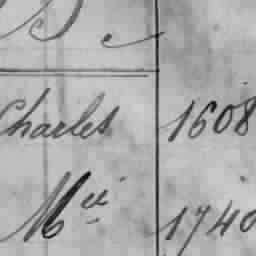 Charles 1608
Mii 1740